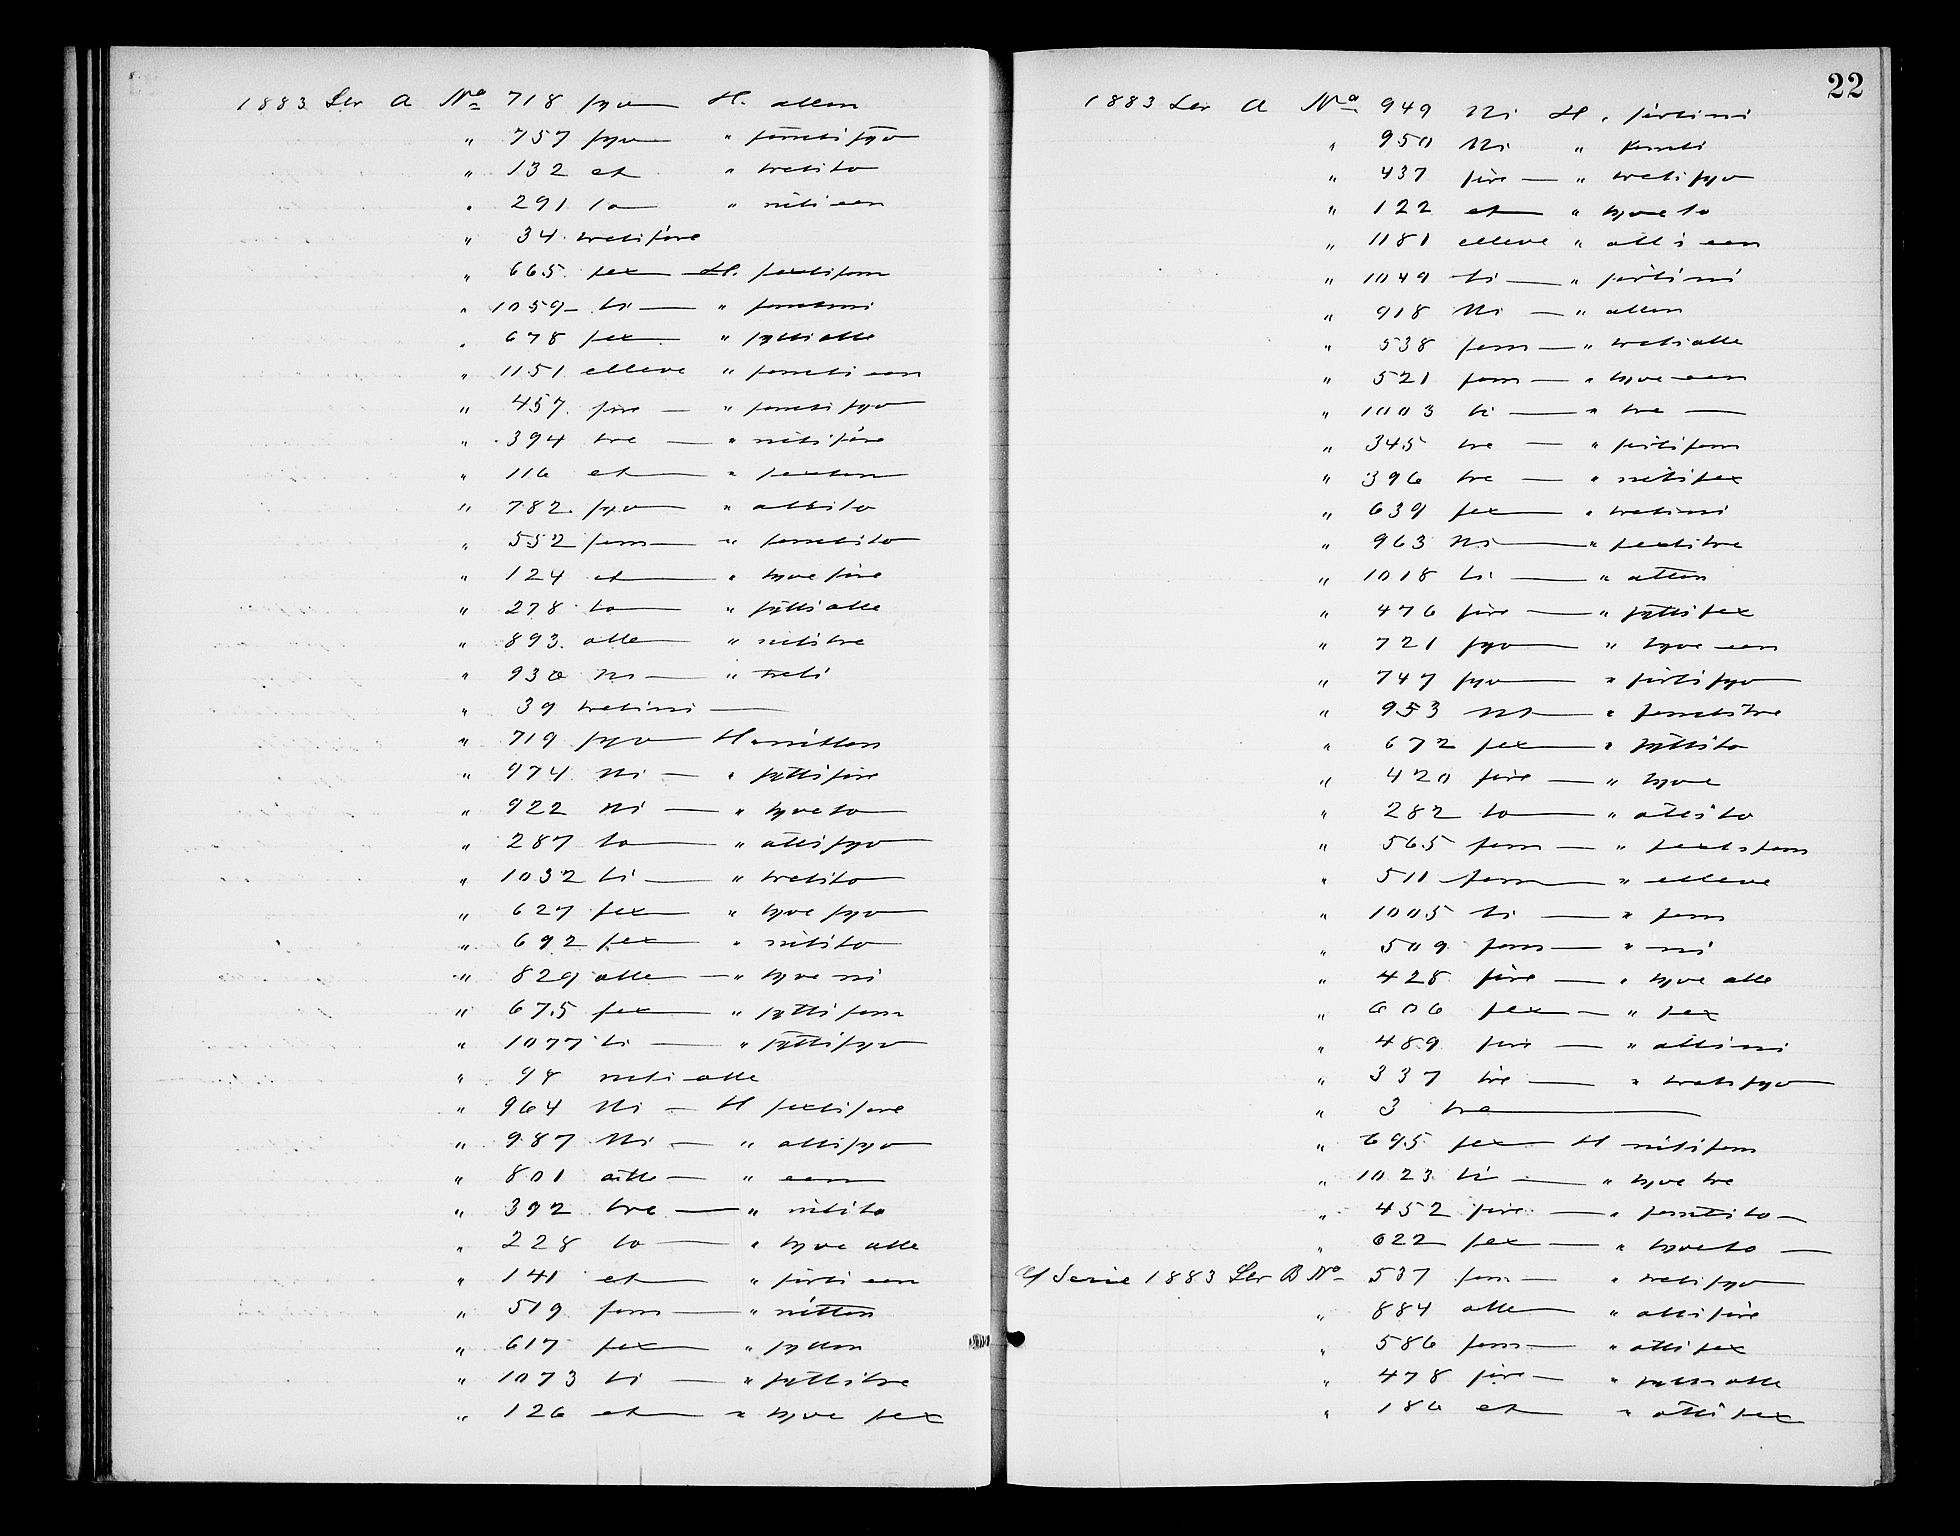 1883 Ser A No 718 syv H. atten
" 757 syv " femtisyv
" 132 et " tretito
" 291 to " nitieen
" 34 tretifire
" 665 sex H. sextifem
" 1059 ti " femtini
" 678 sex " syttiotte
" 1151 elleve " femtieen
" 457 fire " femtisyv
" 394 tre " nitifire
" 116 et " sexten
" 782 syv " ottito
" 552 fem " femtito
" 124 et " tyvefire
" 278 to " syttiotte
" 893 otte " nititre
" 930 Ni " treti
" 39 tretini
" 719 syv H nitten
" 974 Ni " syttifire
" 922 Ni " tyveto
" 287 to " ottisyv
" 1032 ti " tretito
" 627 sex " tyvesyv
" 692 sex " nitito
" 829 otte " tyve ni
" 675 sex " syttifem
" 1077 ti " syttisyv
" 98 nitiotte
" 964 Ni H sextifire
" 987 Ni " ottisyv
" 801 otte " een
" 392 tre " nitito
" 228 to " tyve otte
" 141 et " førtieen
" 519 fem " nitten
" 617 sex " sytten
" 1073 ti " syttitre
" 126 et " tyve sex
22
1883 Ser A No 949 Ni H. førtini
" 950 Ni " femti
" 437 fire " tretisyv
" 122 et " tyveto
" 1181 elleve " ottieen
" 1049 ti " førtini
" 918 Ni " atten
" 538 fem " tretiotte
" 521 fem " tyve een
" 1003 ti " tre
" 345 tre " førtifem
" 396 tre " nitisex
" 639 sex " tretini
" 963 Ni " sextitre
" 1018 ti " atten
" 476 fire " syttisex
" 721 syv " tyve een
" 747 syv " førtisyv
" 953 Ni " femtitre
" 672 sex " syttito
" 420 fire " tyve
" 282 to " ottito
" 565 fem " sextifem
" 511 fem " elleve
" 1005 ti " fem
" 509 fem " ni
" 428 fire " tyve otte
" 606 sex " sex
" 489 fire " ottini
" 337 tre " tretisyv
" 3 tre
" 695 sex H nitifem
" 1023 ti " tyve tre
" 452 fire " femtito
" 622 sex " tyveto
Af Serie 1883 Ser B No 537 fem " tretisyv
" 884 otte " ottifire
" 586 fem " ottisex
" 478 fire " syttiotte
" 186 et " ottisex